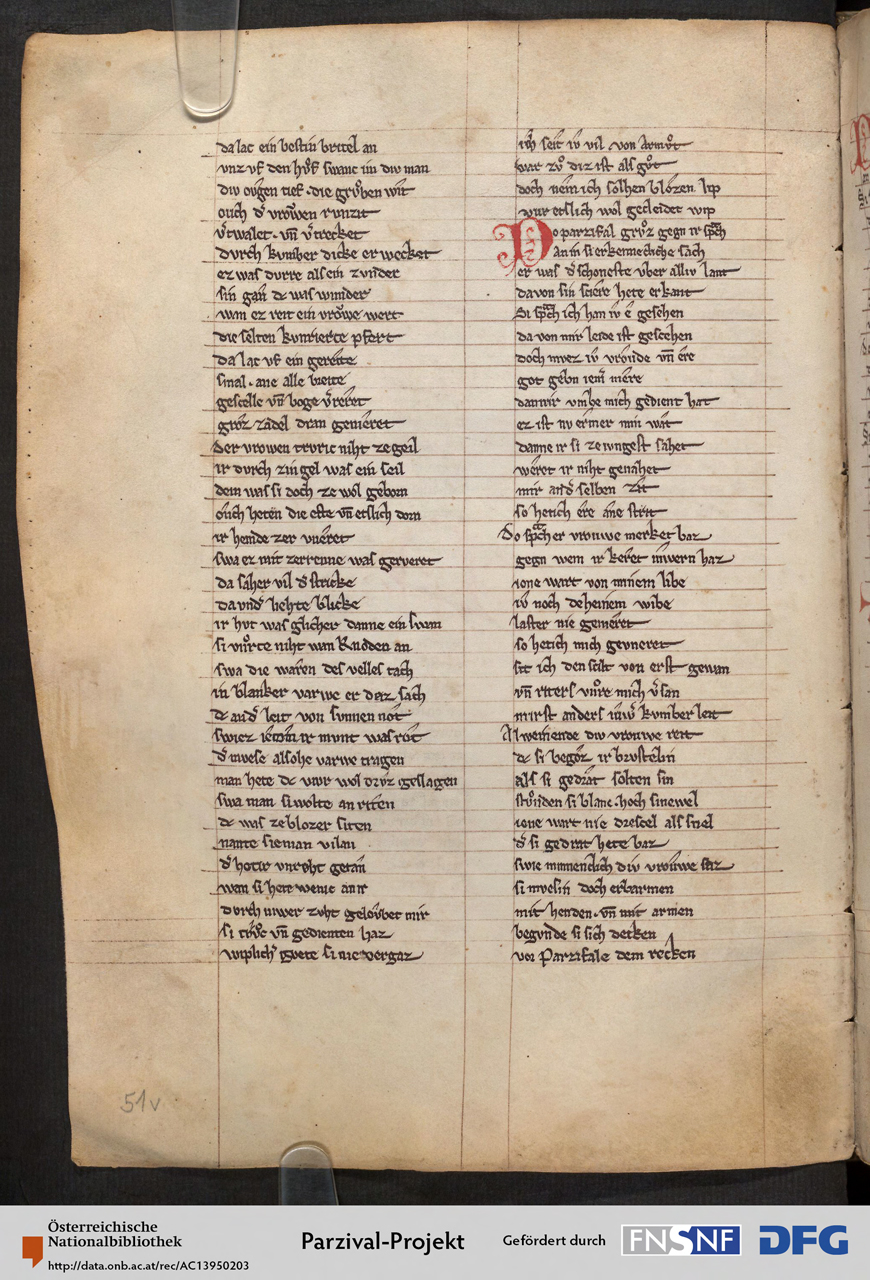 da lac ein bestin britel an
vnz vf den hvͦf swanc im div man
div oͮgen tief · die grvͦben wit
oͮch dˢ vroͮwen rvnzit
vˢtwalet · vn̄ vˢtrecket
dvrch kvmber dicke erwecket
ez was dvrre als ein zvnder
sin gan dc was wunder
wan ez reit ein vroͮwe wert
die selten kvnrierte pfert
da lac vf ein gereite
smal · ane alle breite
geschelle vn̄ boge vˢreret
groz zadel dran gemeret
Der vrowen trvric niht ze geil
ir dvrch zingel was ein seil
dem was si doch ze wol geborn
oͮch heten die este vn̄ etslich dorn
ir hemde zer vueret
swa ez mit zerrenne was gervret
da saher vil dˢ stricke
da vndˢ liehte blicke
ir hvt was glicher danne ein swan
si fvͦrte niht wan knoden an
swa die waren des velles tach
in blanker varwe er daz sach
dc andˢ leit von svnnen not
swiez ie kom ir mvnt was rot
dˢ mvese alsohe varwe tragen
man hete dc viur wol drvz geslagen
swa man si wolte an riten
dc was ze blozer siten
nante sie man vilan
dˢ hetir vnreht getan
wan si hete wenic an ir
dvrch iuwer zvht geloͮbet mir
si trvͦc vn̄ gedienten haz
wiplichˢ gvete si nie vergaz
ich seit iv vil von armvͦt
war zvͦ diz ist als gvͦt
doch nem ich solhen blozen lip
vur etslich wol gecleidet wip
Do parzifal grvͦz gegn ir sprach
an in si erkennecliche sach
er was dˢ schoneste vber alliv lant
da von sin sciere hete erkant
Si sprach ich han iv e gesehen
da von mir leide ist geschehen
doch mvez iv vrovde vn̄ ere
got gebn iemˢ mere
dann ir vmbe mich gedient hat
ez ist nv ermer min wat
danne ir si ze iungest sahet
weret ir niht genahet
mir an dˢ selben zit
so hetich ere ane strit
Do sprach er vrouwe merket baz
gegn wem ir keret iuwern haz
ione wart von minem libe
iv noch deheinem wibe
laster nie gemeret
so hetich mich gevneret
sit ich den schilt von erst gewan
vn̄ riters vuͦre mich vˢsan
mirst anders iuwˢ kvmber leit
Al weinende div vrouwe reit
dc si begoz ir brvstelin
als si gedræt solten sin
stvͦnden si blanc · hoch sinewel
ione wart nie drescel als snel
dˢ si gedræt hete baz
swie minneclich div vrouwe saz
si mvesin doch erbarmen
mit henden · vn̄ mit armen
begvnde si sich decken
vor Parzifale dem recken
51v
Österreichische
Nationalbibliothek
http://data.onb.ac.at/rec/AC13950203
Parzival-Projekt
Gefördert durch
FNSNF
DFG